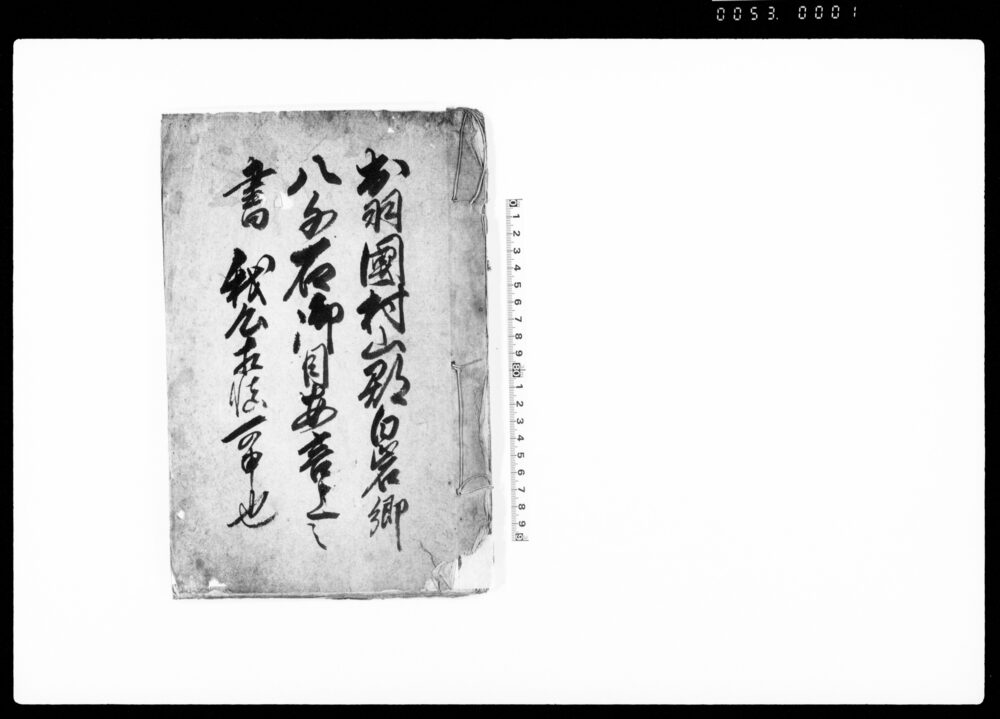 0053. 0001
出羽國村山郡白岩郷
八千石御目安言上之
書 我相慎可申也
0 1 2 3 4 5 6 7 8 9 1 2 3 4 5 6 7 8 9